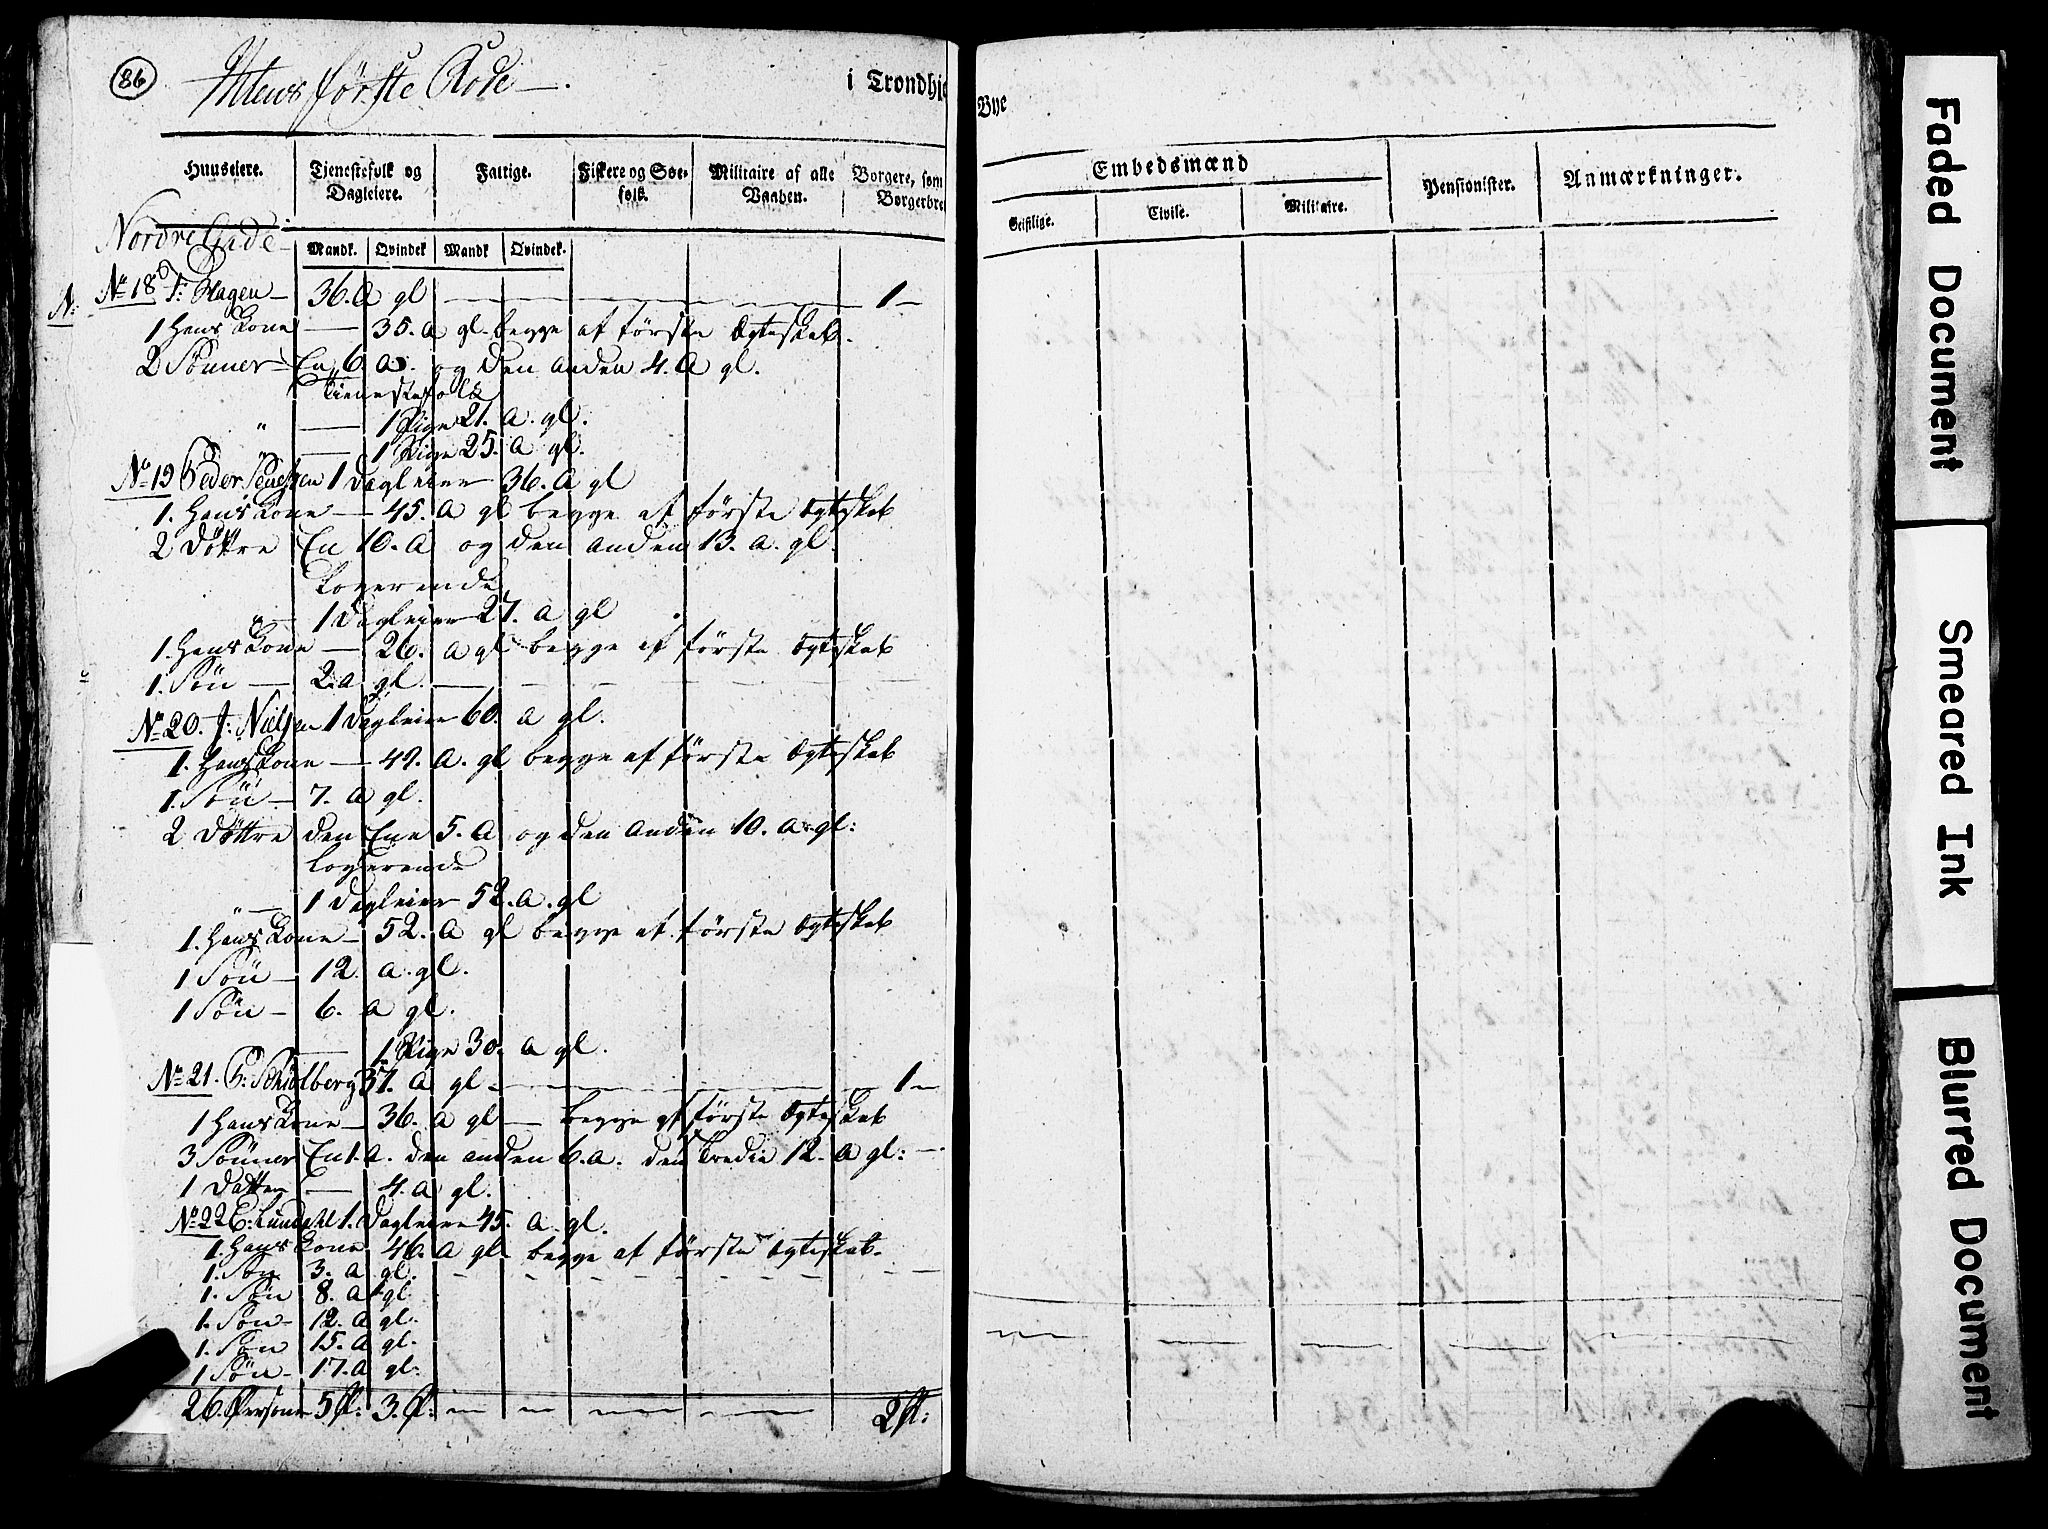 86
Ihlens første Rode
i Trondhje
Huuseiere.
Tjenestefolk og Dagleiere.
Fattige.
Fiskere og Søefolk.
Militaire af alle Vaaben.
Borgere, som
Borgerbre
Nordre Gade
Mandk. Qvindek Mandk Qvindek.
N:
No 18 Hagen — 36. A gl — 1 —
1 Hans Kone — 35. a gl. begge af første Egteskab.
2 Sønner — En 6. a. og den anden 4. A gl.
Tienestefolk
" — 1 Pige 21. a. gl.
" — 1 Pige 25. a gl.
No 19 Peder 1 Dagleier 36. A gl
1. Hans Kone — 45. A gl begge af første Egteskab
2 Døttre En 10. A og den anden 13. a. gl.
Logerende
" — 1 Dagleier 27. a gl
1. Hans Kone — 26. a gl begge af første Egteskab
1. Søn — 2. a gl. —
No 20. J: Nielsen 1 Dagleier 60. a gl.
1. Hans Kone — 42. A. gl begge af første Egteskab
1. Søn — 7. a gl.
2 Døttre den Ene 5. A og den anden 10. a gl:
Logerende
" — 1 Dagleier 52. a. gl
1. Hans Kone — 52. A gl begge af første Egteskab
1 Søn — 12. a. gl.
1 Søn — 6. a gl.
— 1 Pige 30. a gl.
No 21. 37. a gl — 1 —
1 Hans Kone — 36. a gl — begge af første Egteskab
3 Sønner En 1. a. den anden 6. a. den tredie 12. a gl: —
1 Datter — 4. a gl.
No 22 E: Lundahl 1. Dagleier 45. a. gl.
1. Hans Kone 46. a gl — begge af første Egteskab.
1. Søn 3. a gl.
1. Søn 8. a gl.
1. Søn — 12. a gl.
1. Søn 15. a gl.
1 Søn — 17. a gl:
26. Persone 5 P: 3. P: — 2 P:
Bye
Embedsmænd
Geistlige.
Civile.
Militaire.
Pensionister.
Anmærkninger.
Faded Document
Smeared Ink
Blurred Document